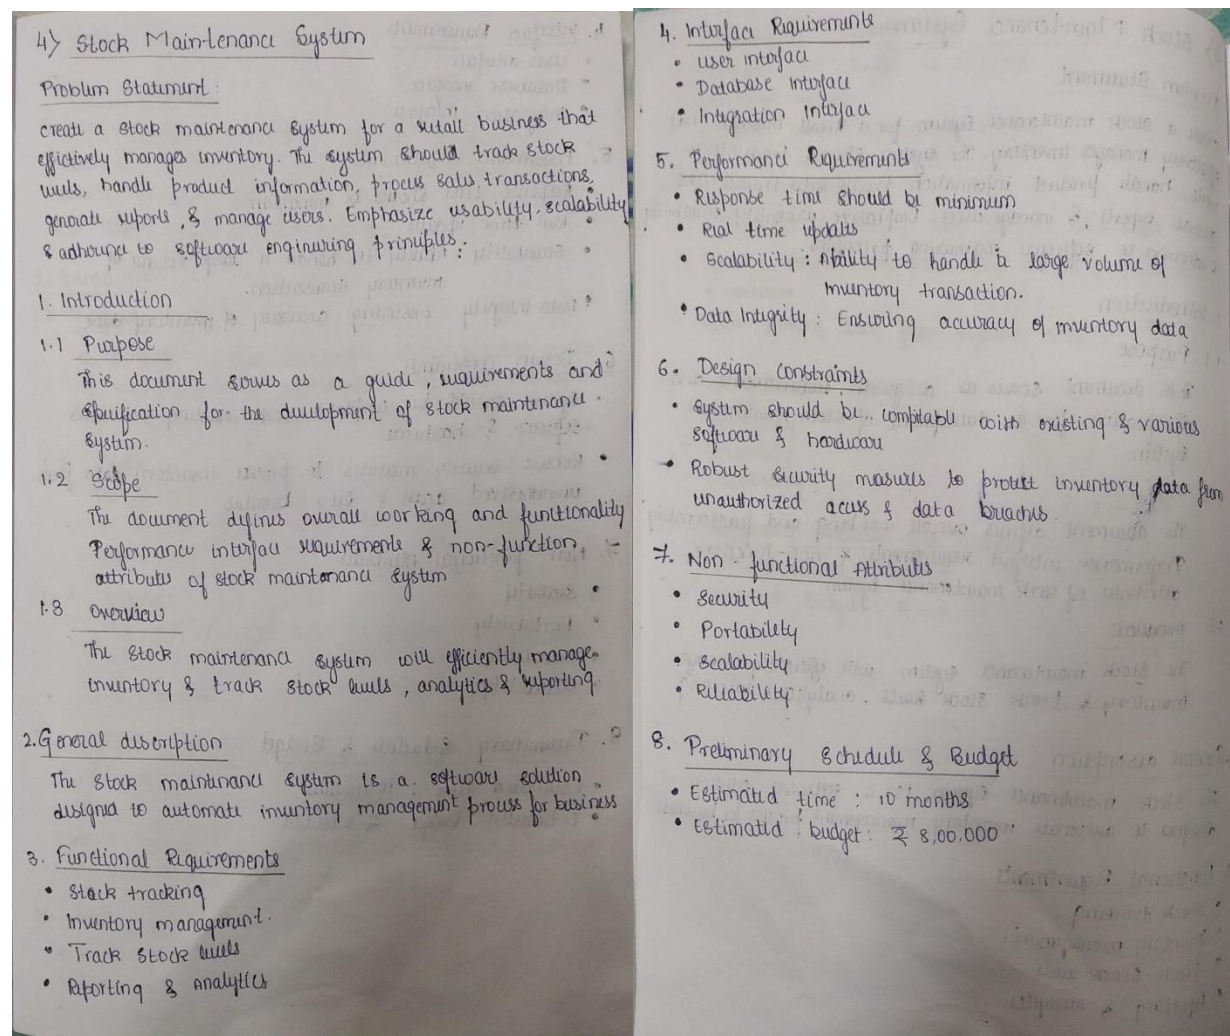 4) Stock Maintenance System
Problem Statement:
create a stock maintenance system for a retail business that
effictively manages inventory. The system should track stock
levels, handle product information, process sales transactions,
generate reports, & manage users. Emphasize usability, scalability
& adherence to software engineering principles.
1. Introduction
1.1 Purpose
This document serves as a guide, requirements and
specification for the development of stock maintenance
system.
1.2 Scope
The document defines overall working and functionality
Performance interface requirements & non-function
attributes of stock maintenance system
1.3 Overview
The stock maintenance system will efficiently manage
inventory & track stock levels, analytics & reporting.
2. General discription
The stock maintenance system is a software solution
designed to automate inventory management process for business
3. Functional Requirements
• Stock tracking
• Inventory management.
• Track stock levels
• Reporting & Analytics
4. Interface Requirements
• User interface
• Database interface
• Integration interface
5. Performance Requirements
• Response time should be minimum
• Real time updates
• Scalability: Ability to handle a large volume of
inventory transaction.
• Data Integrity: Ensuring accuracy of inventory data
6. Design constraints
• System should be compitable with existing & various
software & hardware
• Robust security masures to protect inventory data from
unauthorized access & data breaches.
7. Non-functional Attributes
• Security
• Portability
• Scalability
• Reliability
8. Preliminary Schedule & Budget
• Estimated time: 10 months
• Estimated budget: ₹ 8,00,000